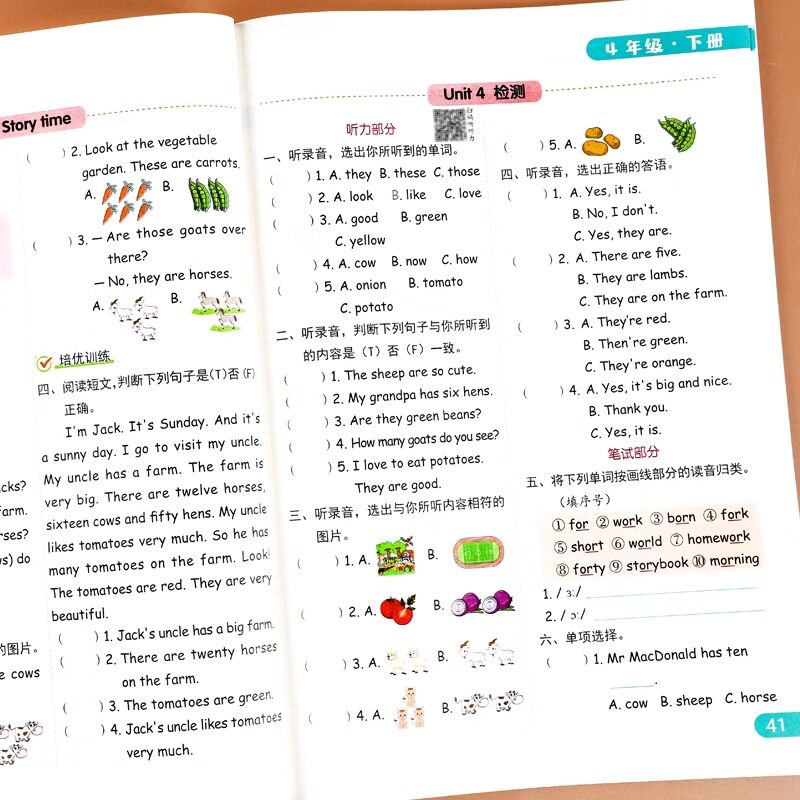 Story time
( ) 2. Look at the vegetable
garden. These are carrots.
A. B.
( ) 3. — Are those goats over
there?
— No, they are horses.
A. B.
培优训练
四、阅读短文,判断下列句子是(T)否(F)
正确。
I'm Jack. It's Sunday. And it's
a sunny day. I go to visit my uncle.
My uncle has a farm. The farm is
very big. There are twelve horses,
sixteen cows and fifty hens. My uncle
likes tomatoes very much. So he has
many tomatoes on the farm. Look!
The tomatoes are red. They are very
beautiful.
( ) 1. Jack's uncle has a big farm.
( ) 2. There are twenty horses
on the farm.
( ) 3. The tomatoes are green.
( ) 4. Jack's uncle likes tomatoes
very much.
cks?
farm.
rses?
ws) do
的图片。
e cows
4年级·下册
Unit 4 检测
听力部分
一、听录音,选出你所听到的单词。
( ) 1. A. they B. these C. those
( ) 2. A. look B. like C. love
( ) 3. A. good B. green
C. yellow
( ) 4. A. cow B. now C. how
( ) 5. A. onion B. tomato
C. potato
二、听录音,判断下列句子与你所听到
的内容是(T)否(F)一致。
( ) 1. The sheep are so cute.
( ) 2. My grandpa has six hens.
( ) 3. Are they green beans?
( ) 4. How many goats do you see?
( ) 5. I love to eat potatoes.
They are good.
三、听录音,选出与你所听内容相符的
图片。
( ) 1. A. B.
( ) 2. A. B.
( ) 3. A. B.
( ) 4. A. B.
( ) 5. A. B.
四、听录音,选出正确的答语。
( ) 1. A. Yes, it is.
B. No, I don't.
C. Yes, they are.
( ) 2. A. There are five.
B. They are lambs.
C. They are on the farm.
( ) 3. A. They're red.
B. Then're green.
C. They're orange.
( ) 4. A. Yes, it's big and nice.
B. Thank you.
C. Yes, it is.
笔试部分
五、将下列单词按画线部分的读音归类。
(填序号)
① for ② work ③ born ④ fork
⑤ short ⑥ world ⑦ homework
⑧ forty ⑨ storybook ⑩ morning
1. /ɜː/
2. /ɔː/
六、单项选择。
( ) 1. Mr MacDonald has ten
.
A. cow B. sheep C. horse
41